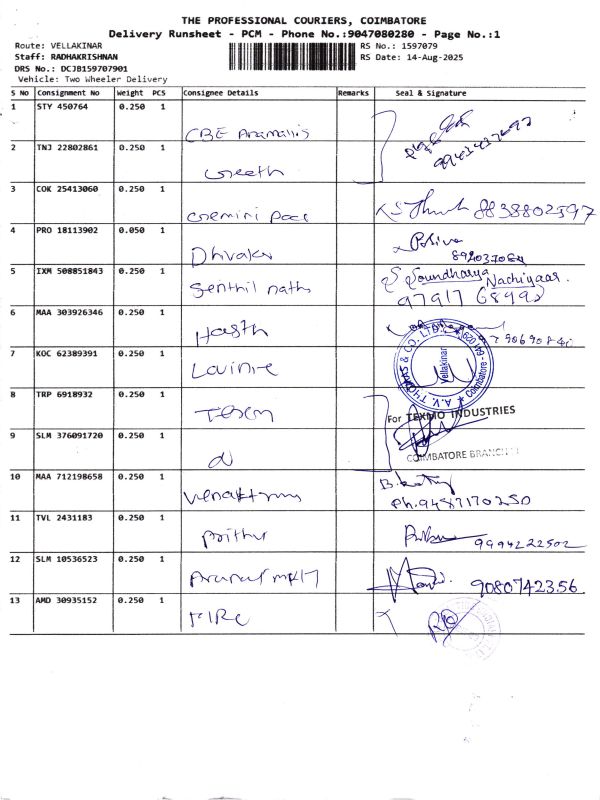 THE PROFESSIONAL COURIERS, COIMBATORE
Delivery Runsheet - PCM - Phone No.:9047080280 - Page No.:1
Route: VELLAKINAR
RS No.: 1597079
Staff: RADHAKRISHNAN
RS Date: 14-Aug-2025
DRS No.: DCJB159707901
Vehicle: Two Wheeler Delivery
S No Consignment No Weight PCS Consignee Details Remarks Seal & Signature
1 STY 450764 0.250 1
CBE
2 TNJ 22802861 0.250 1
Geeth
3 COK 25413060 0.250 1
Gemini 8838802597
4 PRO 18113902 0.050 1
Dhivakr
5 IXM 508851843 0.250 1
Senthil nath Soundharya Nachiyaar.
97917 68992
6 MAA 303926346 0.250 1
7 KOC 62389391 0.250 1
A.V. THOMAS & CO. LTD. Vellakinar Coimbatore - 641 029
8 TRP 6918932 0.250 1
For TEXMO INDUSTRIES
9 SLM 376091720 0.250 1
COIMBATORE BRANCH
10 MAA 712198658 0.250 1
Ph.9487170250
11 TVL 2431183 0.250 1
Prithvi 9994222502
12 SLM 10536523 0.250 1
9080742356
13 AMD 30935152 0.250 1